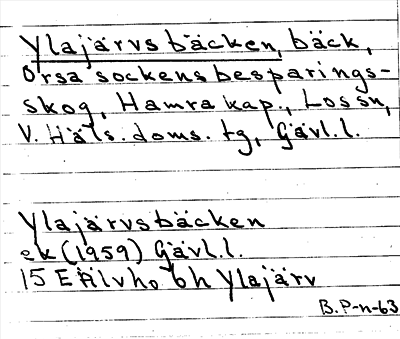 Ylajärvsbäcken, bäck,
Orsa sockens besparings-
skog, Hamra kap., Los sn,
V. Häls. doms. tg, Gävl.l.
Ylajärvsbäcken
ek (1959) Gävl.l.
15 E Älvho 6h Ylajärv
B.P-n-63